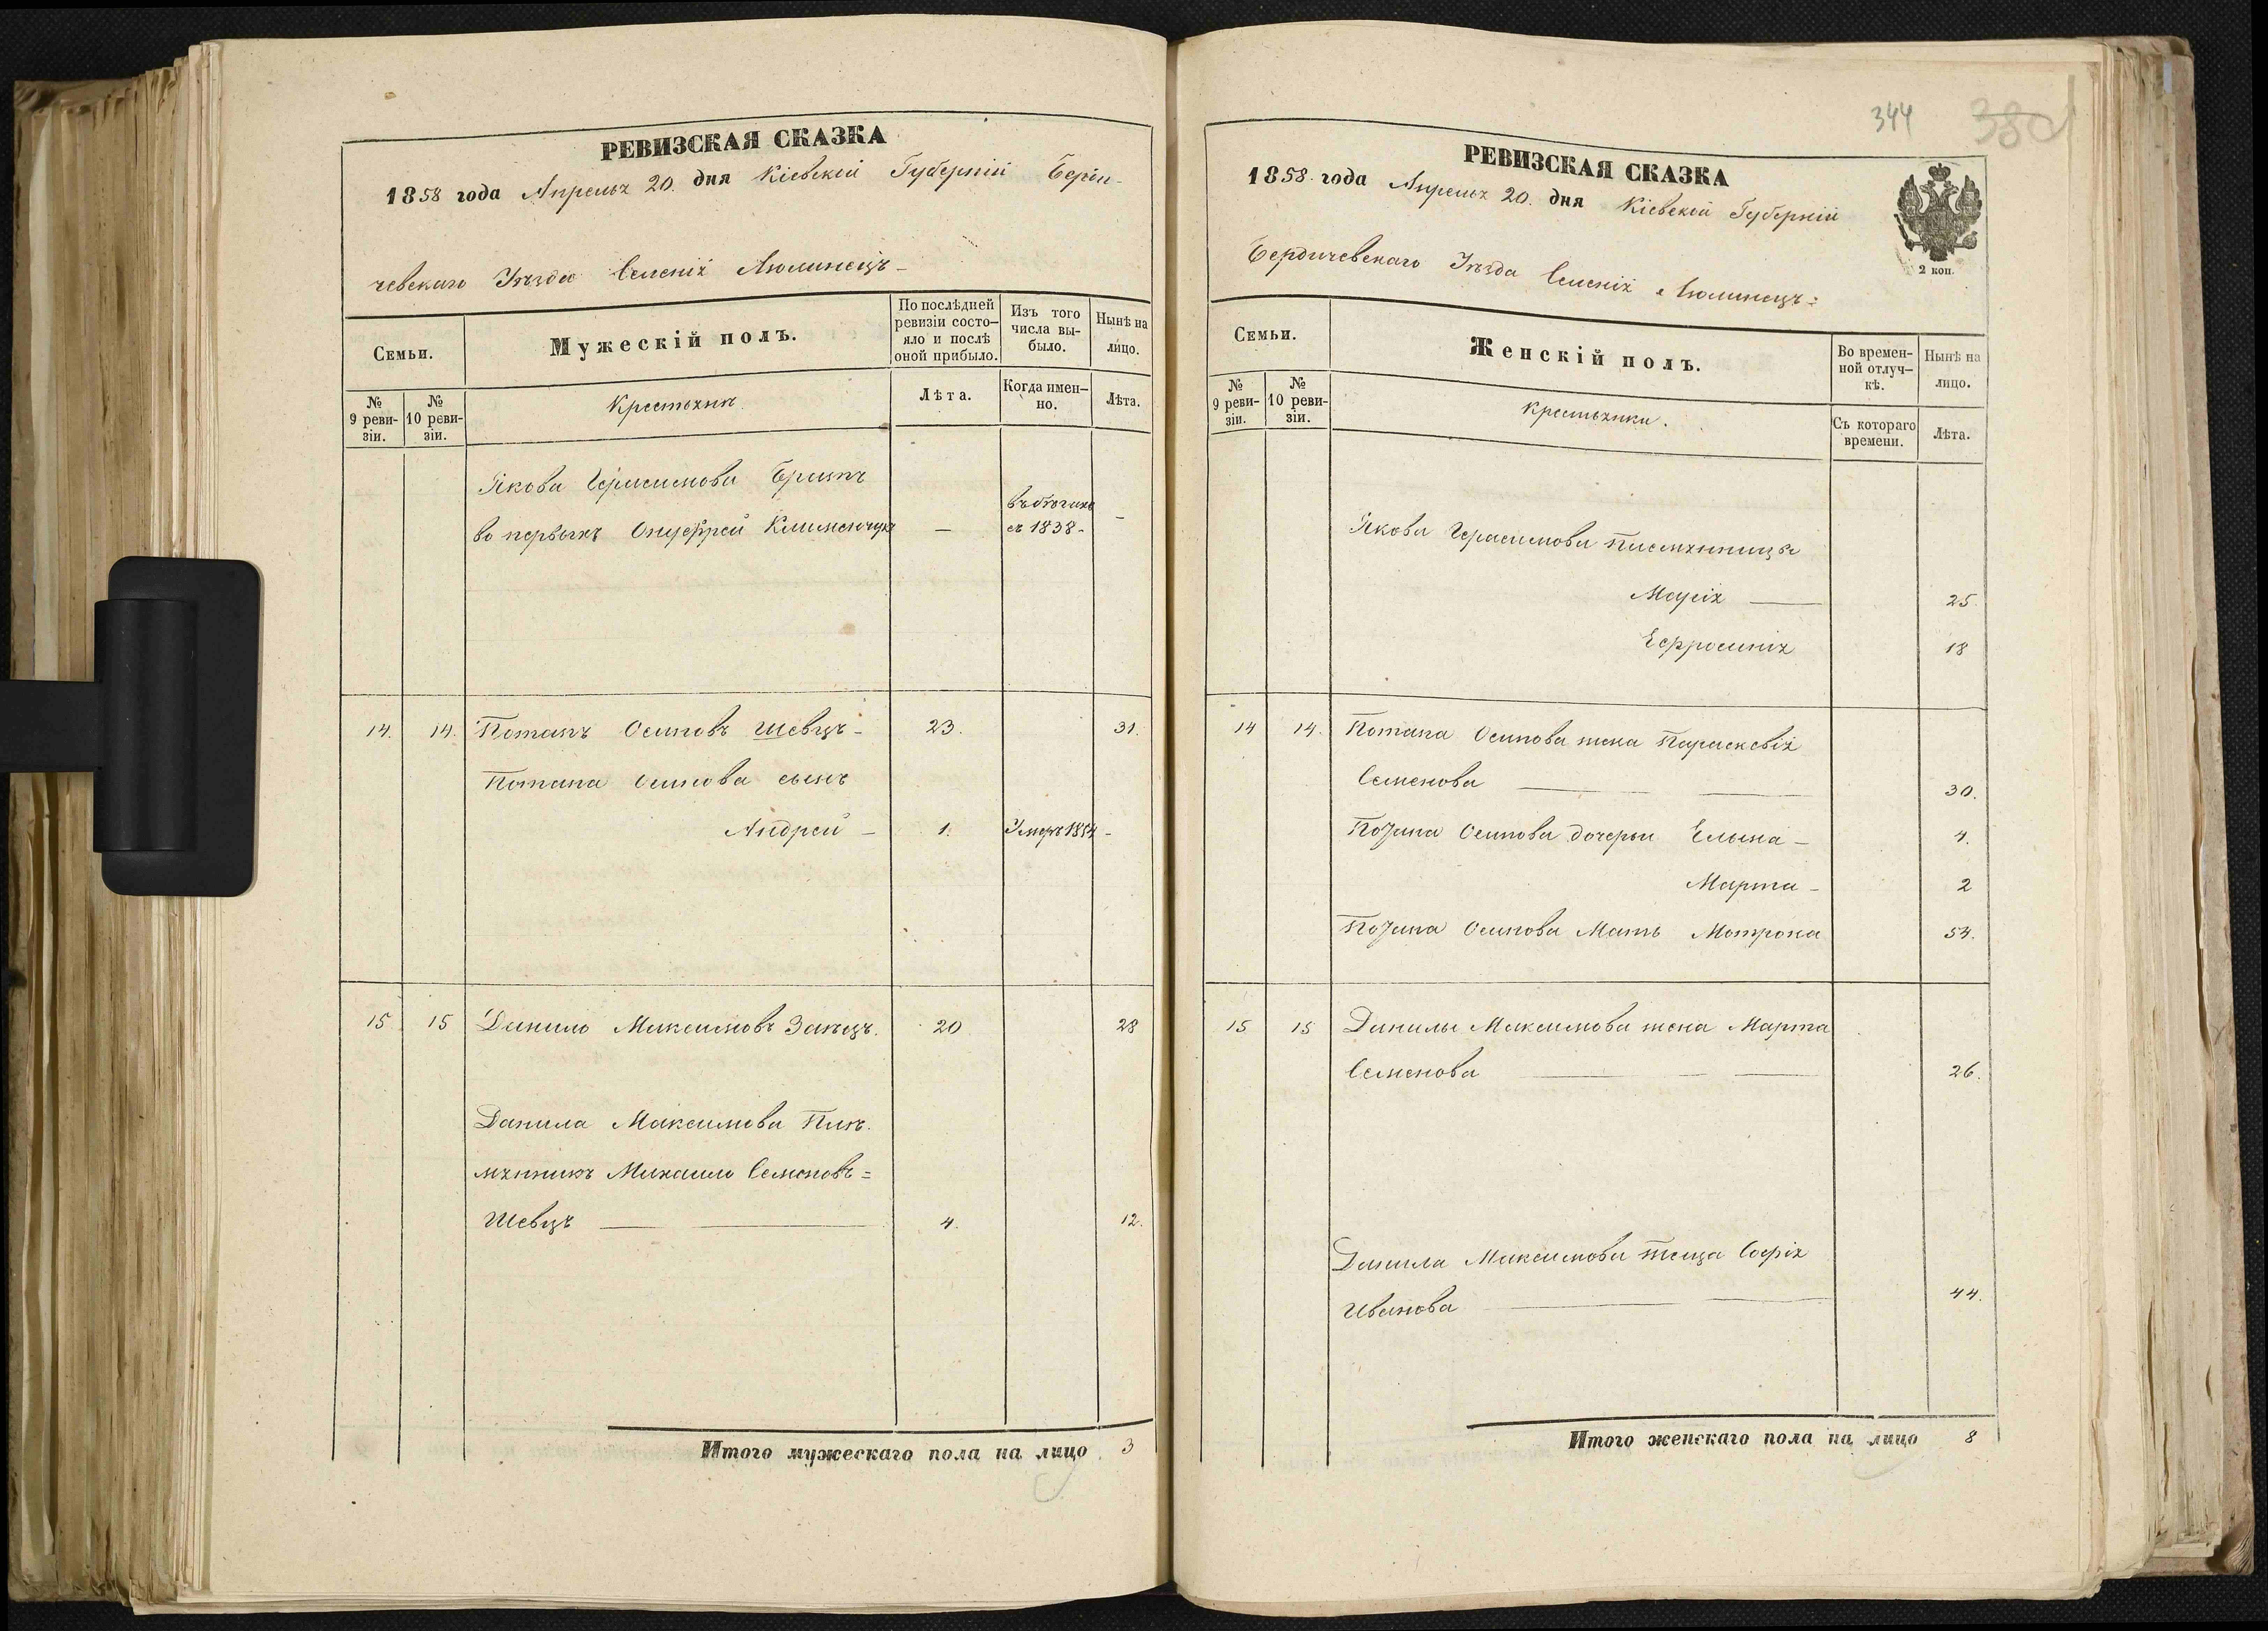 РЕВИЗСКАЯ СКАЗКА
1858 года Апреля 20. дня Кіевской Губерніи Берди-
чевскаго Уѣзда Селенія Люлинецъ-
Семьи.
Мужескій полъ.
По послѣдней ревизіи состо-яло и послѣ оной прибыло.
Изъ того числа вы-было.
Нынѣ на лицо.
№ 9 реви-зіи.
№ 10 реви-зіи.
Крестьяне
Лѣта.
Когда имен-но.
Лѣта.
Якова Герасимова Братъ
во первыхъ Онуфрей Клименчукъ — въ бѣгахъ съ 1838- -
14. 14. Потапъ Осиповъ Шевцъ- 23. 31.
Потапа Осипова сынъ
Андрей - 1. Умеръ 1854 -
15. 15 Данило Максимовъ Заяцъ. 20 28
Данила Максимова Пле-
мянникъ Михаило Семеновъ=
Шевцъ — 4. 12.
Итого мужескаго пола на лицо 3
344
380
РЕВИЗСКАЯ СКАЗКА
1858 года Апреля 20. дня Кіевской Губерніи
Бердичевскаго Уѣзда Селенія Люлинецъ:
2 коп.
Семьи.
Женскій полъ.
Во времен-ной отлуч-кѣ.
Нынѣ на лицо.
№ 9 реви-зіи.
№ 10 реви-зіи.
Крестьянки.
Съ котораго времени.
Лѣта.
Якова Герасимова племянницы
Марія — 25.
Ефросинія 18
14 14. Потапа Осипова жена Параскевія
Семенова — 30.
Потапа Осипова дочери Елена - 4.
Марта - 2
Потапа Осипова Мать Мотрона 54.
15 15 Данилы Максимова жена Марта
Семенова — 26.
Данила Максимова теща Софія
Иванова — 44.
Итого женскаго пола на лицо 8